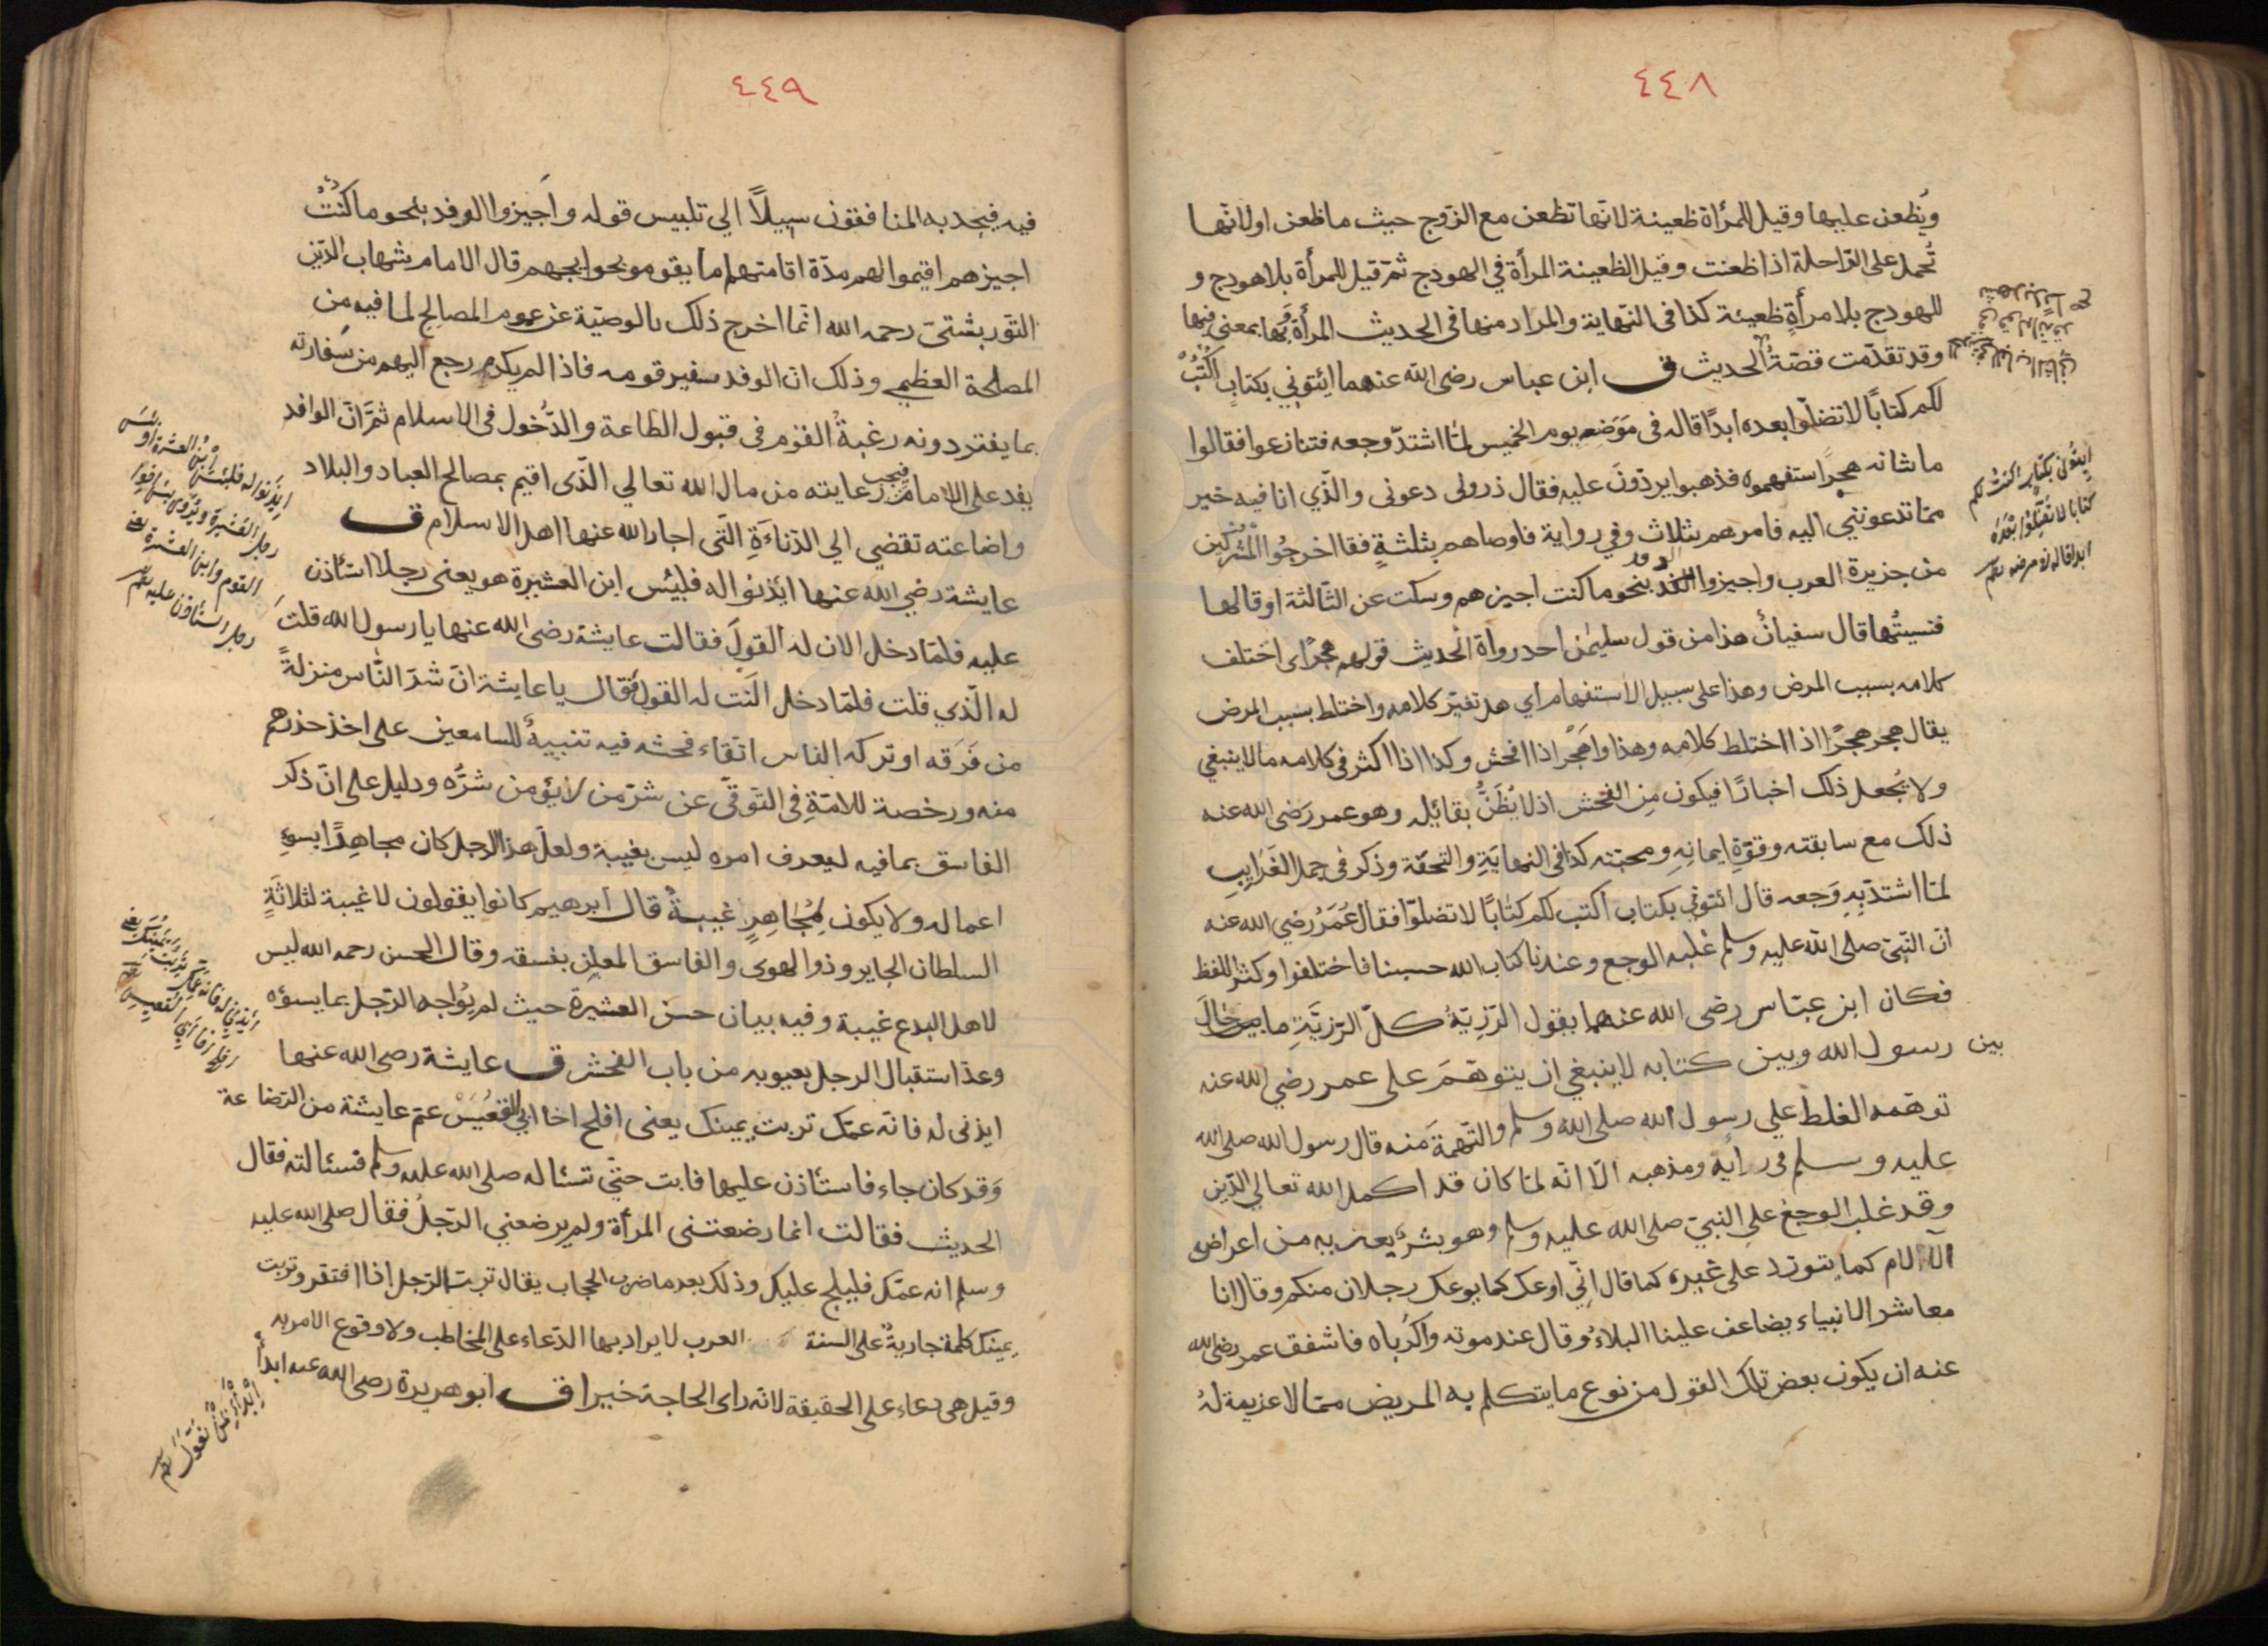 ٤٤٨
ويُظعن عليها وقيل للمرأة ظعينة لانّها تظعن مع الزّوج حيث ما ظعن او لانّها
تُحمل على الرّاحلة اذا ظعنت وقيل الظعينة المرأة في الهودج ثمّ قيل للمرأة بلا هودج و
للهودج بلا مرأةٍ ظعينة كذا في النّهاية والمراد منها في الحديث المرأة
وقد تقدّمت قصّةُ الحديث ق ابن عباس رضى الله عنهما ايئتونِي بكتابٍ اكْتُبْ
لكم كتابًا لا تضلّوا بعده ابدًا قاله في مَوَضعه يوم الخميس لمّا اشتدّ وجعه فتنازعوا فقالوا
ما شانه هجرًا استفهموه فذهبوا يردّونَ عليه فقال ذروني دعونى والّذي انا فيه خير
ممّا تدعونني اليه فامرهم بثلاث وفي رواية فاوصاهم بثلثةٍ فقا اخرجُوا المُشركين
من جزيرة العرب واجيزوا الوفد بنحو ما كنت اجيزهم وسكت عن الثّالثة او قالها
فنسيتُها قال سفيانُ هذا من قول سليمٰن احد رواة الحديث قولهم هجرًا اى اختلف
كلامه بسبب المرض وهذا على سبيل الاستفهام أي هل تغيّر كلامه واختلط بسبب المرض
يقال هجر هجرًا اذا اختلط كلامه وهذا واهَجر اذا افحش وكذا اذا اكثر في كلامه ما لا ينبغي
ولا يُجعل ذلك اخبارًا فيكون مِن الفحش اذ لا يُظَنُّ بقائله وهو عمر رَضى الله عنه
ذلك مع سابقته وقوّةِ ايمانهِ ومحبّته كذا في النهايَةِ والتحفّة وذكر في جمل الغَرايبِ
لمّا اشتدّ بِهِ وَجعه قال ائتونِي بكتاب اكتب لكم كتابًا لا تضلوّا فقال عُمَرُ رضي الله عنه
انّ النّبيّ صلى الله عليه وسلم غلبه الوجع وعندنا كتاب الله حسبنا فاختلفوا وكثر اللفظ
فكان ابن عبّاس رضى الله عنهما يقول الرّزِيّةُ كلّ الرّزيَّةِ ما حَالَ
بين رسول الله وبين كتابه لا ينبغي ان يتوهّمَ على عمر رضي الله عنه
توهّمه الغلط علي رسول الله صلى الله وسلم والتّهمةَ منه قال رسول الله صلى الله
عليه وسلم في رأيه ومذهبه الّا انّه لمّا كان قد اكمل الله تعالي الدّين
وقد غلب الوجع على النبيّ صلى الله عليه وسلم وهو بشرٌ يعتريه من اعراض
الآلام كما يتورّد على غيره كما قال اِنّي اوعك كما يوعك رجلان منكم وقال انا
معاشر الانبياء يضاعف علينا البلاءُ وقال عند موته واكرُباه فاشفق عمر رضى الله
عنه ان يكون بعض تلك القول من نوع ما يتكلم به المريض ممّا لا عزيمة لهُ
ايتُونى بكتابٍ اكتبْ لكم
كتابًا لا تضلّوا بَعْدَهُ
ابدا قاله في مرضه
٤٤٩
فيه فيجد به المنافقون سبيلاً الي تلبيس قوله واَجيزوا الوفد بنحو ما كُنْتُ
اجيزهم اقيموا لهم مدّة اقامتهم ما يقوم بحوايجهم قال الامام شهاب الدّين
التّوربشتىّ رحمه الله انّما اخرج ذلك بالوصيّة عن عموم المصالح لما فيه من
المصلحة العظمي وذلك انّ الوفد سفير قومه فاذا لم يكرم رجع اليهم من سفارته
بما يفتر دونه رغبةُ القوم في قبول الطّاعة والدُّخول في الاسلام ثمّ انّ الوافد
يفد على الامام فيجب رعايته من مال الله تعالي الّذى اقيم بمصالح العباد والبلاد
واضاعته تقضي الي الدّناءَةِ الّتى اجار الله عنها اهل الاسلام ق
عايشة رضي الله عنها ايْذنوا له فلبئس ابن العشيرة هو يعنى رجلا استأذن
عليه فلمّا دخل الان له القولَ فقالت عايشة رضى الله عنها يا رسول الله قلتَ
له الّذي قلت فلمّا دخل النت له القول فقال يا عايشة انّ شرّ النّاس منزلةً
من فَرَقه او تركه الناس اتّقاء فحشه فيه تنبيهٌ للسامعين على اخذ حذرهم
منه ورخصة للامّةِ في التّوقّي عن شرّ من لا يؤمن شرّه ودليل على انّ ذكر
الفاسق بما فيه ليعرف امره ليس بغيبة ولعلّ هذا الرجل كان مجاهِرًا بسوءِ
اعماله ولا يكون لِمُجاهِرٍ غيبةٌ قال ابرهيم كانوا يقولون لا غيبة لثلاثَةٍ
السلطان الجاير وذو الهوى والفاسق المعلِن بفسقه وقال الحسن رحمه الله ليس
لاهل البدع غيبة وفيه بيان حسنَ العشيرة حيث لم يُواجه الرّجل بما يسؤه
وعدّ استقبال الرجل بعيوبه من باب الفحش ق عايشة رضى الله عنها
ايذنى له فانّه عمّك تربت يمينك يعنى افلح اخا ابي القعُيسْ عمّ عايشة من الرّضاعة
وَقد كان جاء فاستأذن عليها فابت حتّي تسئاله صلى الله عليه وسلم فسئالته فقال
الحديث فقالت انما رضعتنى المرأة ولم يرضعني الرّجلُ فقال صلى الله عليه
وسلم انه عمّك فليلج عليك وذلك بعد ما ضرب الحجاب يقال ترب الرّجل اذا افتقر وتربت
يمينك كلمة جاريةٌ على السنة العرب لا يراد بها الدّعاء على المخاطب ولا وقوع الامر به
وقيل هى دعاء على الحقيقة لانّه راى الحاجة خيرا ق ابو هريرة رضى الله عنه ابدأ
ايذَنوا له فلبئسَ ابْنُ العشيرة او بئسَ
رجل العشيرة ويُرْوٰى بئس اخو
القوم وابن العشيرة يعنى
رجل استأذن عليه
ائذَنِي له فانّه عمّكِ تَرِبَتْ يَمِينُكِ يعنى
افلح اخا ابي القعيس
اِبْدأْ بِمَنْ تَعُولُ